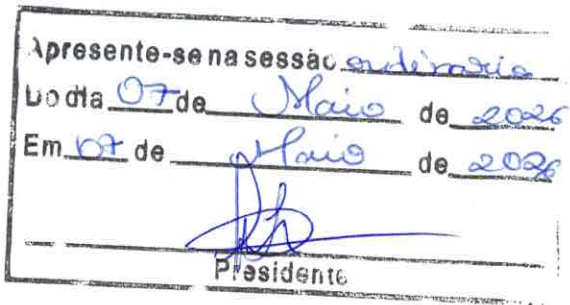 Apresente-se na sessão ordinaria
Do dia 07 de Maio de 2026
Em 07 de Maio de 2026
Presidente